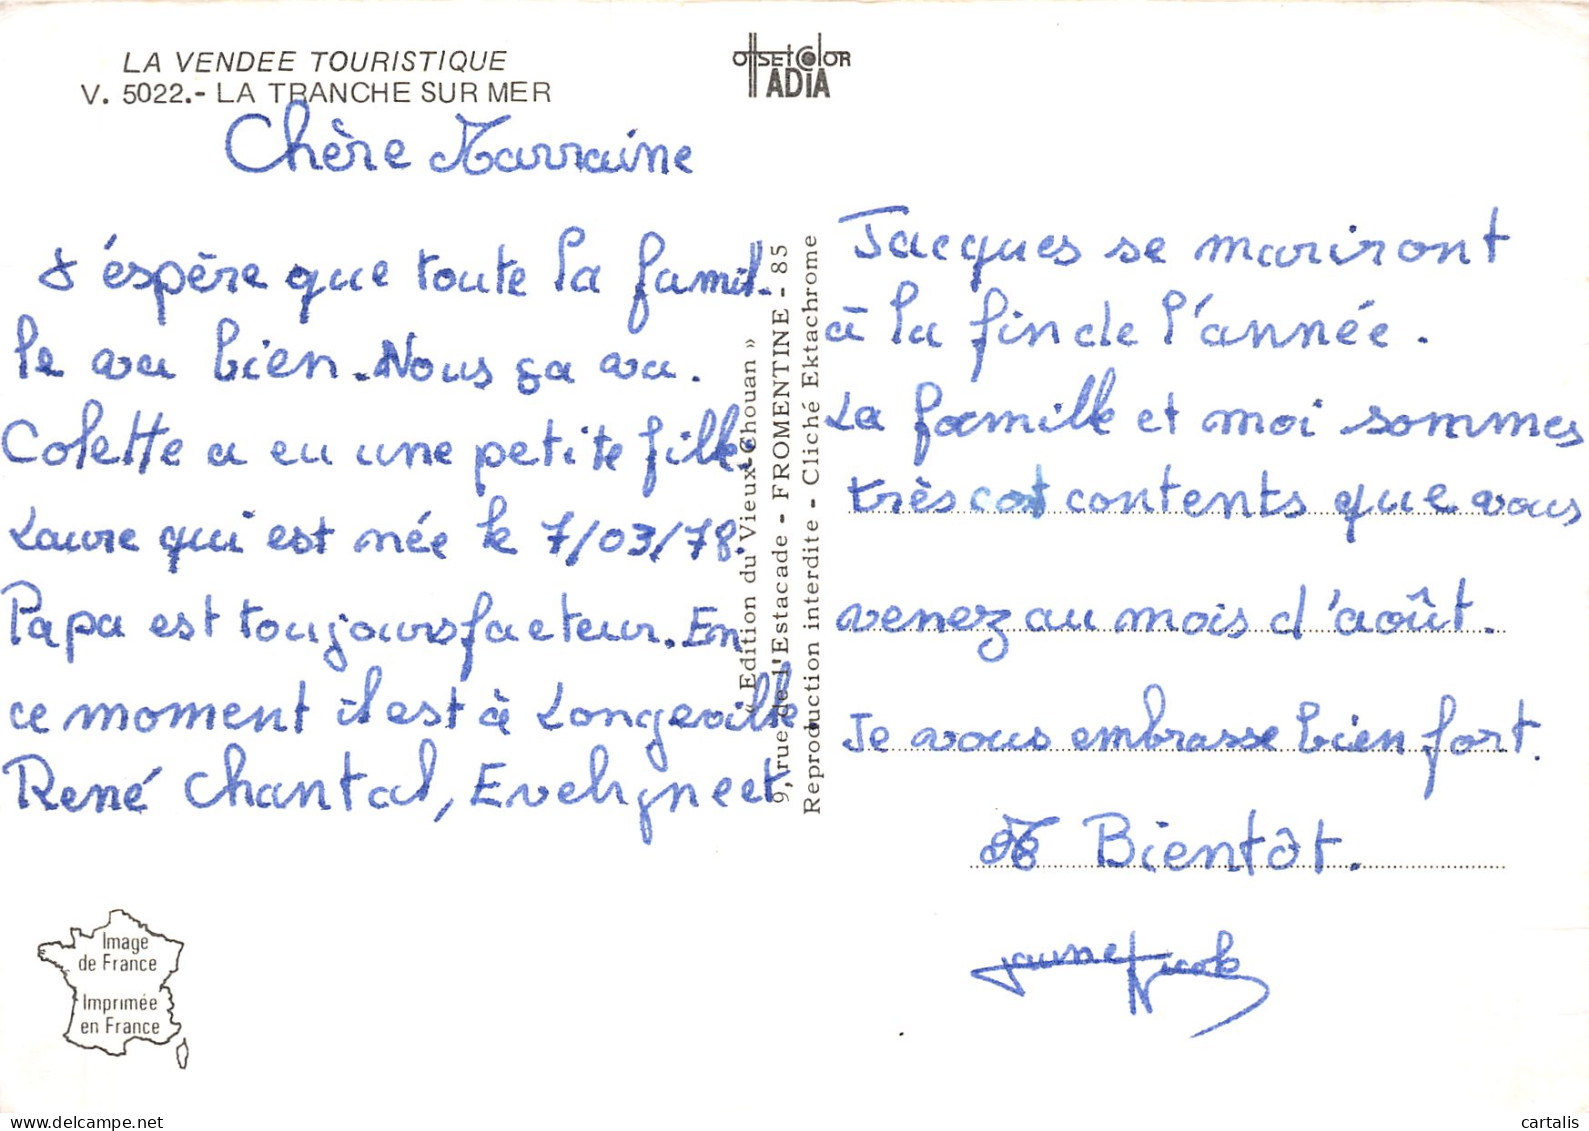 LA VENDEE TOURISTIQUE
V. 5022.- LA TRANCHE SUR MER
OffSEtColOR
ADIA
Chère Marraine
J'espère que toute la famil-
le va bien. Nous ça va.
Colette a eu une petite fille.
Laure qui est née le 7/03/78.
Papa est toujours facteur. En
ce moment il est à Longeville
René Chantal, Evelyne et
« Edition du Vieux-Chouan »
9, rue de l'Estacade - FROMENTINE - 85
Reproduction interdite - Cliché Ektachrome
Jacques se mariront
à la fin de l'année.
La famille et moi sommes
très contents que vous
venez au mois d'août.
Je vous embrasse bien fort.
Bientôt.
Nicole
Image
de France
Imprimée
en France
delcampe.net
cartalis